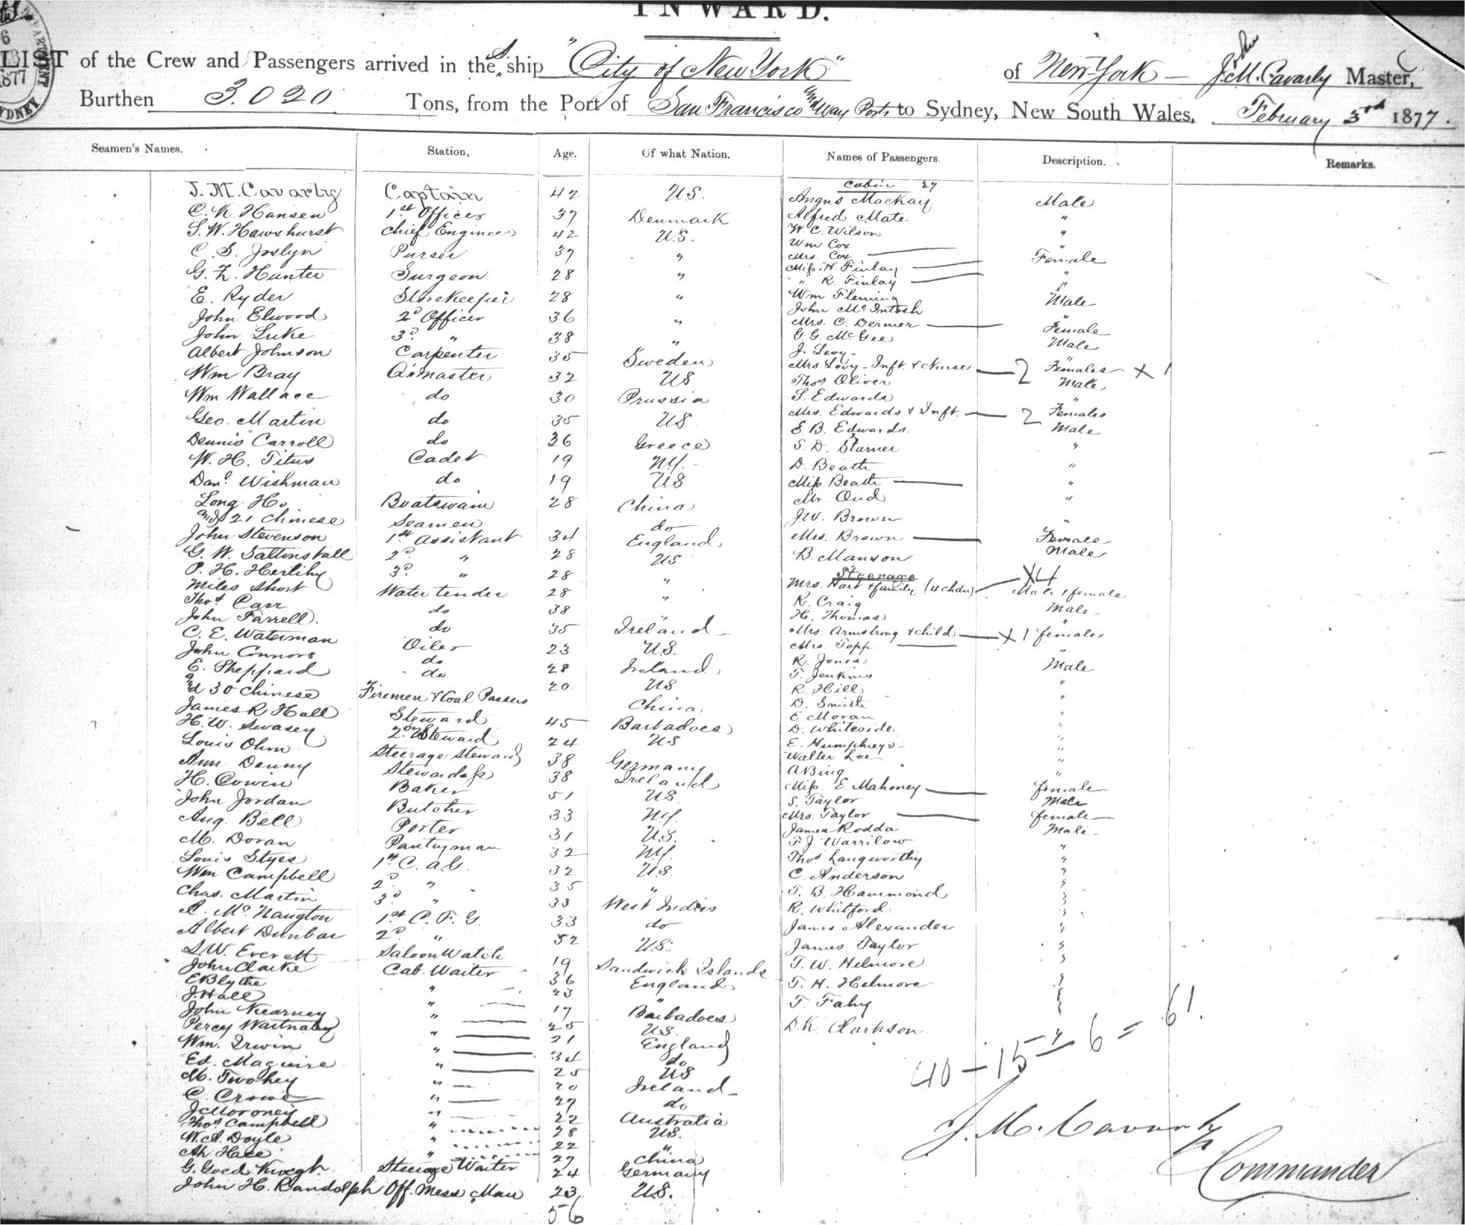 INWARD.
LIST of the Crew and Passengers arrived in the S. ship "City of New York" of New York — John M. Cavarly Master,
Burthen 3.020 Tons, from the Port of San Francisco and Way Ports to Sydney, New South Wales, February 3rd 1877.
Seamen's Names. Station. Age. Of what Nation. Names of Passengers. Description. Remarks.
J. M. Cavarly Captain 42 U.S. Cabin 27
Angus Mackay Male
C. K. Hansen 1st Officer 37 Denmark Alfred Mate "
S. W. Hawshurst Chief Engineer 42 U.S. W C Wilson "
Wm Cox "
C. S. Joslyn Purser 37 " Mrs. Cox Female
Miss H Finlay "
G. Z. Hunter Surgeon 28 " " R Finlay "
E. Ryder Storekeeper 28 " Wm Fleming Male
John Elwood 2d Officer 36 " John McIntosh "
Mrs. C. Dermer Female
John Luke 3d " 38 " G G McGee Male
Albert Johnson Carpenter 35 Sweden J. Levy "
Mrs Levy - Inft & Nurse 2 Females X 1
Wm Bray Qr master 32 US Thos Oliver Male
Wm Wallace do 30 Prussia S. Edwards "
Mrs. Edwards & Inft. 2 Females
Geo. Martin do 35 US E B. Edwards Male
Dennis Carroll do 36 Greece S. D. Starner "
W. H. Titus Cadet 19 NY. D. Beath "
Danl Wishman do 19 US Miss Beath "
Long Ho Boatswain 28 China Mr Oud "
and 21 Chinese Seamen do J W. Brown "
John Stevenson 1st Assistant 34 England Mrs. Brown Female
G. W. Saltinstall 2d " 28 US B Manson Male
P. H. Herlihy 3d " 28 " Steerage
Miles Short Water tender 28 " Mrs. Hart & family (4 chdn) X4 Male & female
Thos Carr do 38 R. Craig Male
John Farrell. do 35 Ireland H. Thomas "
C. E. Waterman Oiler 23 U.S. Mrs Armstrong & child X 1 females
Mrs. Topp "
John Connors do 28 Ireland R. Jones Male
E. Sheppard do 20 US T. Jenkins "
and 30 Chinese Firemen & Coal Passers China R Hill "
D. Smith "
James R Hall Steward 45 Barbadoes E Moran "
H. W. Swasey 2nd Steward 24 US D. Whiteside "
Louis Ohm Steerage Steward 38 Germany E. Humphreys "
Walter Lee "
Ann Denny Stewardess 38 Ireland A Bing "
H. Cowin Baker 51 US Miss E Mahoney female
John Jordan Butcher 33 NY. S. Taylor Male
Mrs. Taylor female
Aug. Bell Porter 31 U.S. James Rodda Male
M. Doran Pantryman 32 NY. F. J Warrilow "
Louis Styes 1st C. a.U. 32 US Thos Langworthy "
Wm Campbell 2d " 35 " C. Anderson "
Chas. Martin 3d " 33 West Indies T. B. Hammond "
A. McNaugton 1st C. F. G. 33 do R. Whitford "
Albert Dunbar 2d " 32 U.S. James Alexander "
S. W. Everett Saloon Watch 19 Sandwich Islands James Taylor "
John Clarke Cab. Waiter 36 England T. W. Helmore "
E Blythe " 23 " T. H. Helmore "
J. Hall " 17 Barbadoes T Fahy "
John Kearney " 25 U.S. D. K. Clarkson
Percy " 21 England
Wm. Irwin " 34 do 40 – 15 + 6 = 61.
Ed. Maguire " 25 US
M. Twohey " 20 Ireland
C. Crowe " 27 do
J McMoroney " 22 Australia J. M. Cavarly
Thos Campbell " 28 U.S.
W. A. Doyle " 22 " Commander
Ah Hee " 27 China
G. Steerage Waiter 24 Germany
John H. Randolph Off. Mess Man 23 U.S.
56